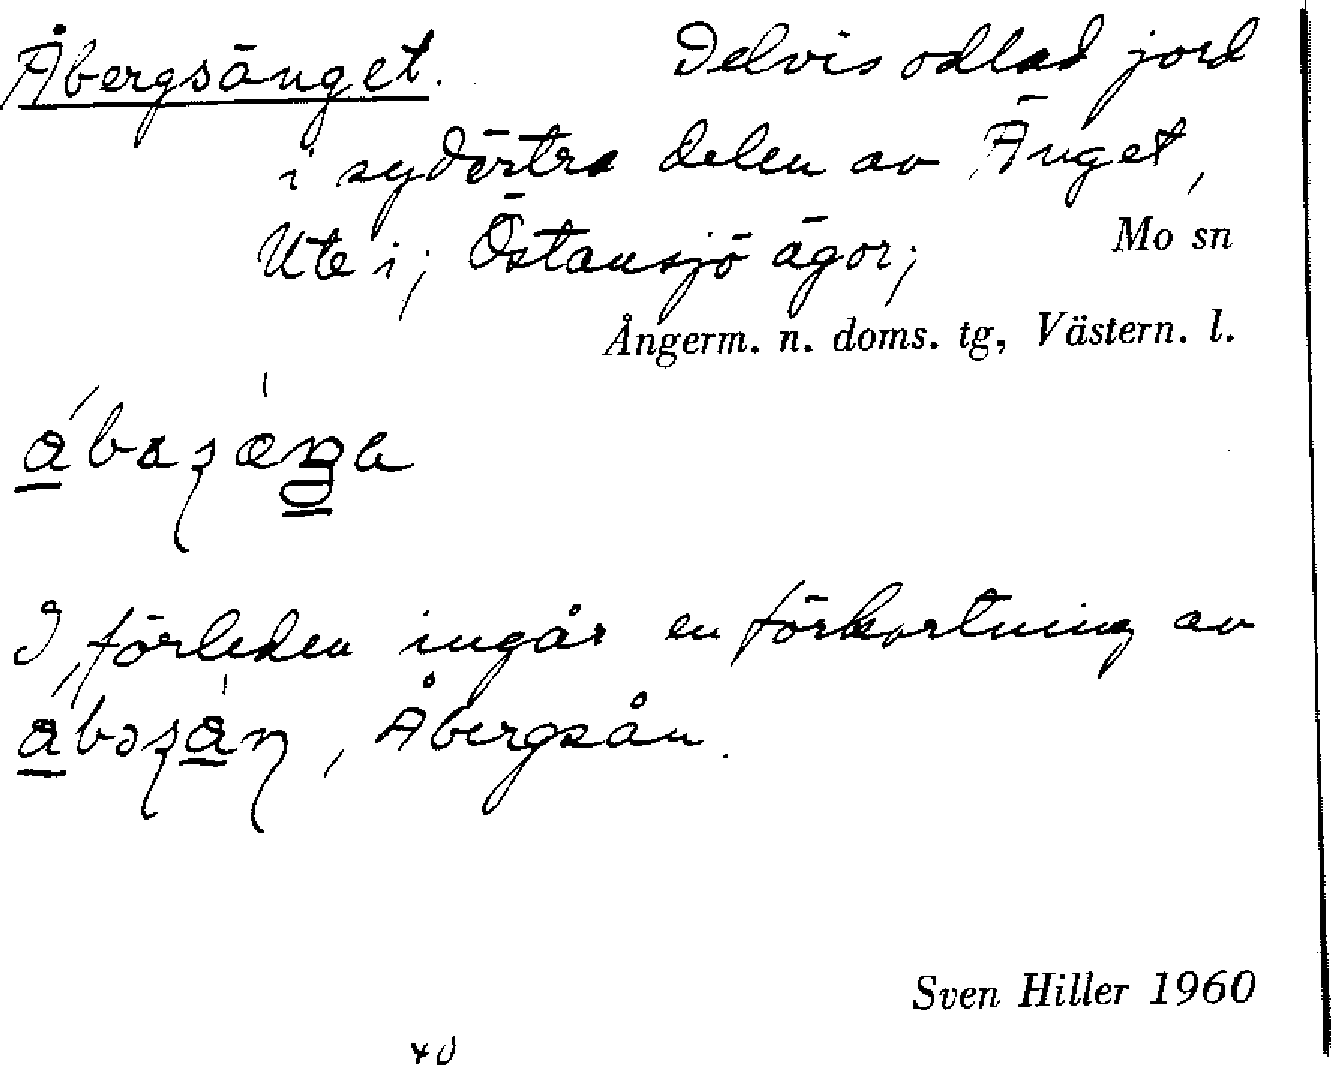 Åbergsänget. Delvis odlad jord
i sydöstra delen av Änget,
Ute i; Östansjö ägor; Mo sn
Ångerm. n. doms. tg, Västern. l.
I förleden ingår en förkortning av
, Åbergsån.
Sven Hiller 1960